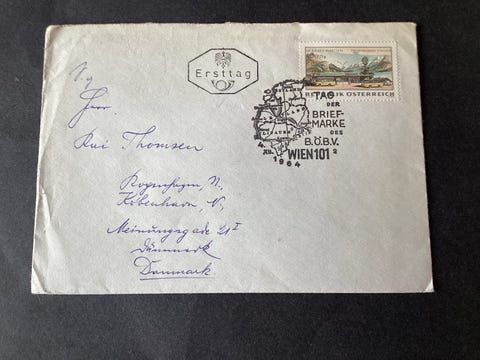 Ersttag
REPUBLIK ÖSTERREICH
TAG
DER
BRIEF-
MARKE
DES
B.Ö.B.V.
WIEN 101
4. XII. 1964
Herr
Kai Thomsen
København N,
Meinungsgade 21 I
Dänmark
Danmark